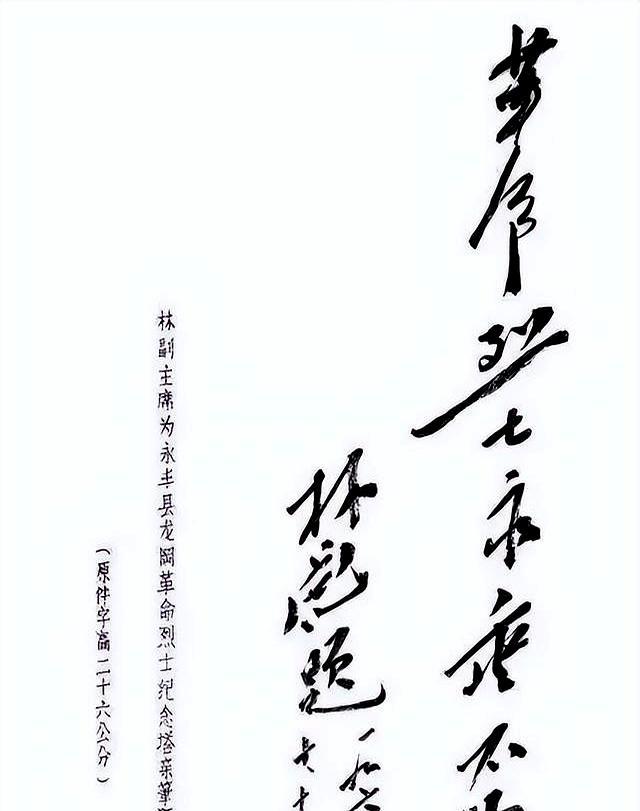 革命烈士永垂不
林彪题
一九六
林副主席为永丰县龙岡革命烈士纪念塔亲筆
(原件字高二十六公分)